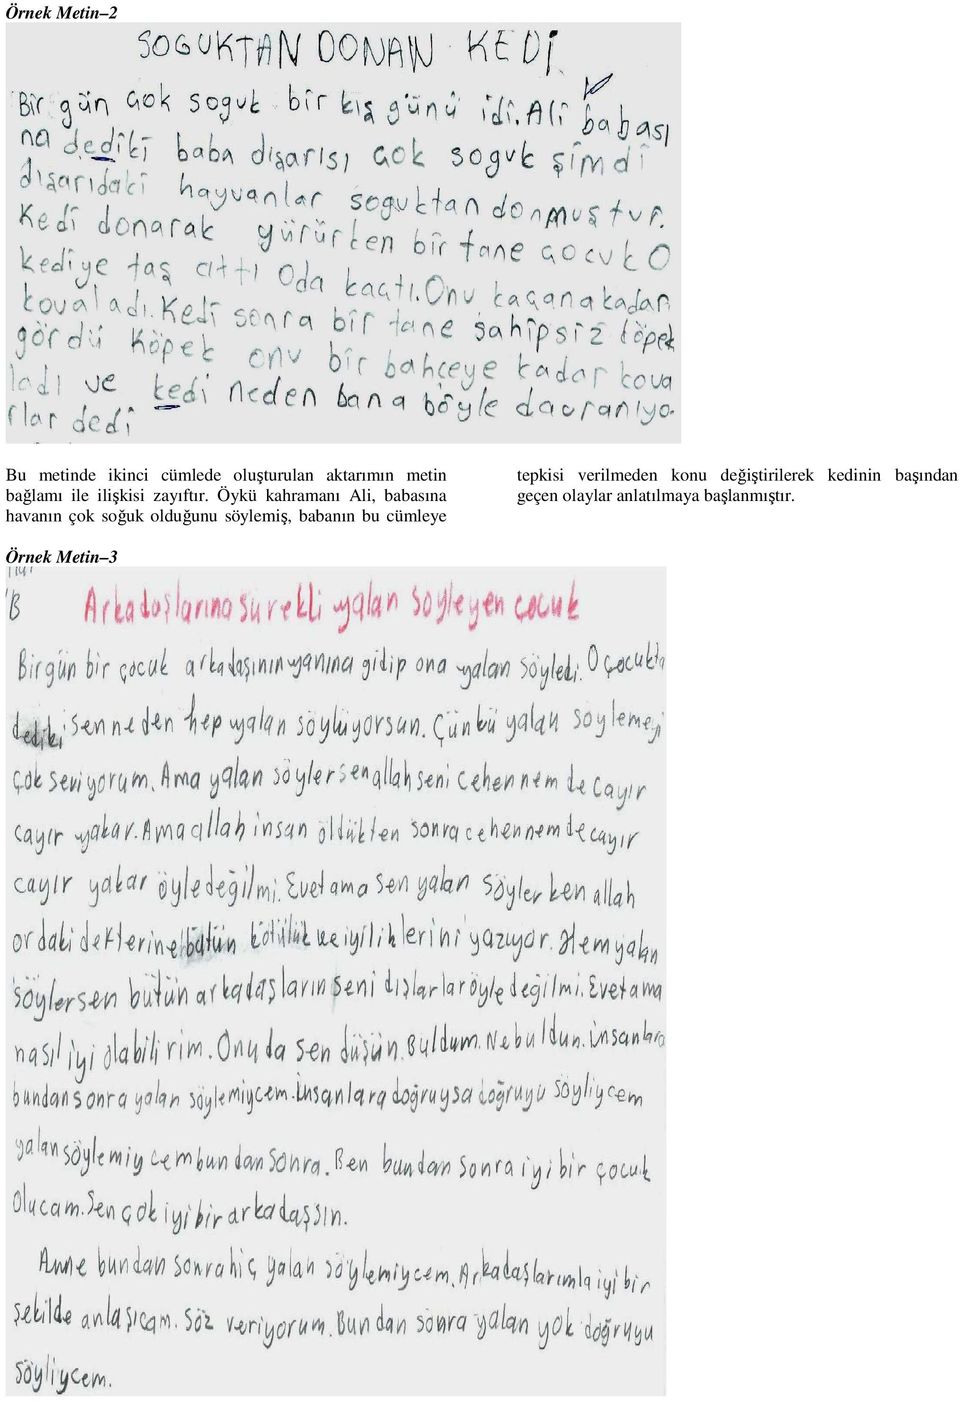 Örnek Metin–2
SOGUKTAN DONAN KEDİ
Bir gün çok soguk bir kış günü idi. Ali babası
na dediki baba dışarısı çok soguk şimdi
dışarıdaki hayvanlar soguktan donmuştur.
Kedi donarak yürürken bir tane çocuk O
kediye taş attı Oda kaçtı. Onu kaçana kadar
kovaladı. Kedi sonra bir tane sahipsiz köpek
gördü Köpek onu bir bahçeye kadar kova
ladı ve kedi neden bana böyle davranıyo-
rlar dedi
Bu metinde ikinci cümlede oluşturulan aktarımın metin
bağlamı ile ilişkisi zayıftır. Öykü kahramanı Ali, babasına
havanın çok soğuk olduğunu söylemiş, babanın bu cümleye
tepkisi verilmeden konu değiştirilerek kedinin başından
geçen olaylar anlatılmaya başlanmıştır.
Örnek Metin–3
B Arkadaşlarına sürekli yalan söyleyen çocuk
Bir gün bir çocuk arkadaşının yanına gidip ona yalan söyledi. O çocukta
dediki sen neden hep yalan söylüyorsun. Çünkü yalan söylemeyi
çok seviyorum. Ama yalan söylersen allah seni cehennem de cayır
cayır yakar. Ama allah insan öldükten sonra cehennem de cayır
cayır yakar öyle değilmi. Evet ama sen yalan söylerken allah
ordaki defterine bütün kötülük ve iyiliklerini yazıyor. Hem yalan
söylersen bütün arkadaşların seni dışlarlar öyle değilmi. Evet ama
nasıl iyi olabilirim. Onu da sen düşün. Buldum. Ne buldun. İnsanlara
bundan sonra yalan söylemiycem. İnsanlara doğruysa doğruyu söyliycem
yalan söylemiycem bundan sonra. Ben bundan sonra iyi bir çocuk
olucam. Sen çok iyi bir arkadaşsın.
Anne bundan sonra hiç yalan söylemiycem. Arkadaşlarımla iyi bir
şekilde anlaşıcam. Söz veriyorum. Bundan sonra yalan yok doğruyu
söyliycem.